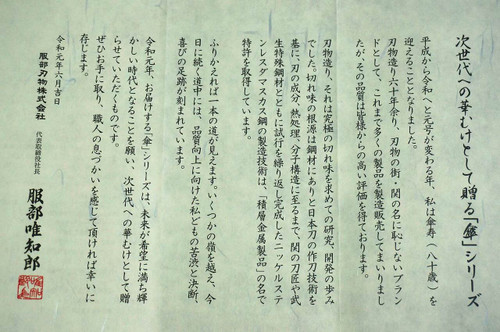 次世代への華むけとして贈る「傘」シリーズ
平成から令和へと元号が変わる年、私は傘寿（八十歳）を
迎えることとなりました。
刃物造り六十年余り、刃物の街・関の名に恥じないブラン
ドとして、これまで多くの製品を製造販売してまいりまし
たが、その品質は皆様からの高い評価を得ております。
刃物造り、それは究極の切れ味を求めての研究、開発の歩み
でした。切れ味の根源は鋼材にありと日本刀の作刀技術を
基に、刃の成分、熱処理、分子構造に至るまで、関の刀匠や武
生特殊鋼材とともに試行を繰り返し完成したニッケルステ
ンレスダマスカス鋼の製造技術は、「積層金属製品」の名で
特許を取得しています。
ふりかえれば一本の道が見えます。いくつかの嶺を越え、今
日に続く道中には、品質向上に向けた私どもの苦渋と決断、
喜びの足跡が刻まれています。
令和元年、お届けする「傘」シリーズは、未来が希望に満ち輝
かしい時代となることを願い、次世代への華むけとして贈
らせていただくものです。
ぜひお手に取り、職人の息づかいを感じて頂ければ幸いに
存じます。
令和元年六月吉日
服部刃物株式会社
代表取締役社長 服部唯知郎